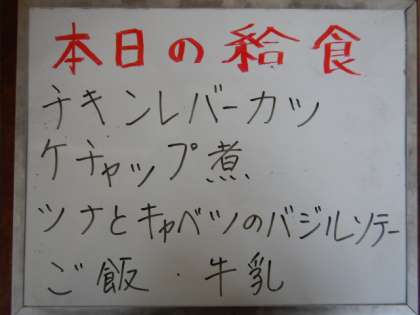 本日の給食
チキンレバーカツ
ケチャップ煮
ツナとキャベツのバジルソテー
ご飯・牛乳